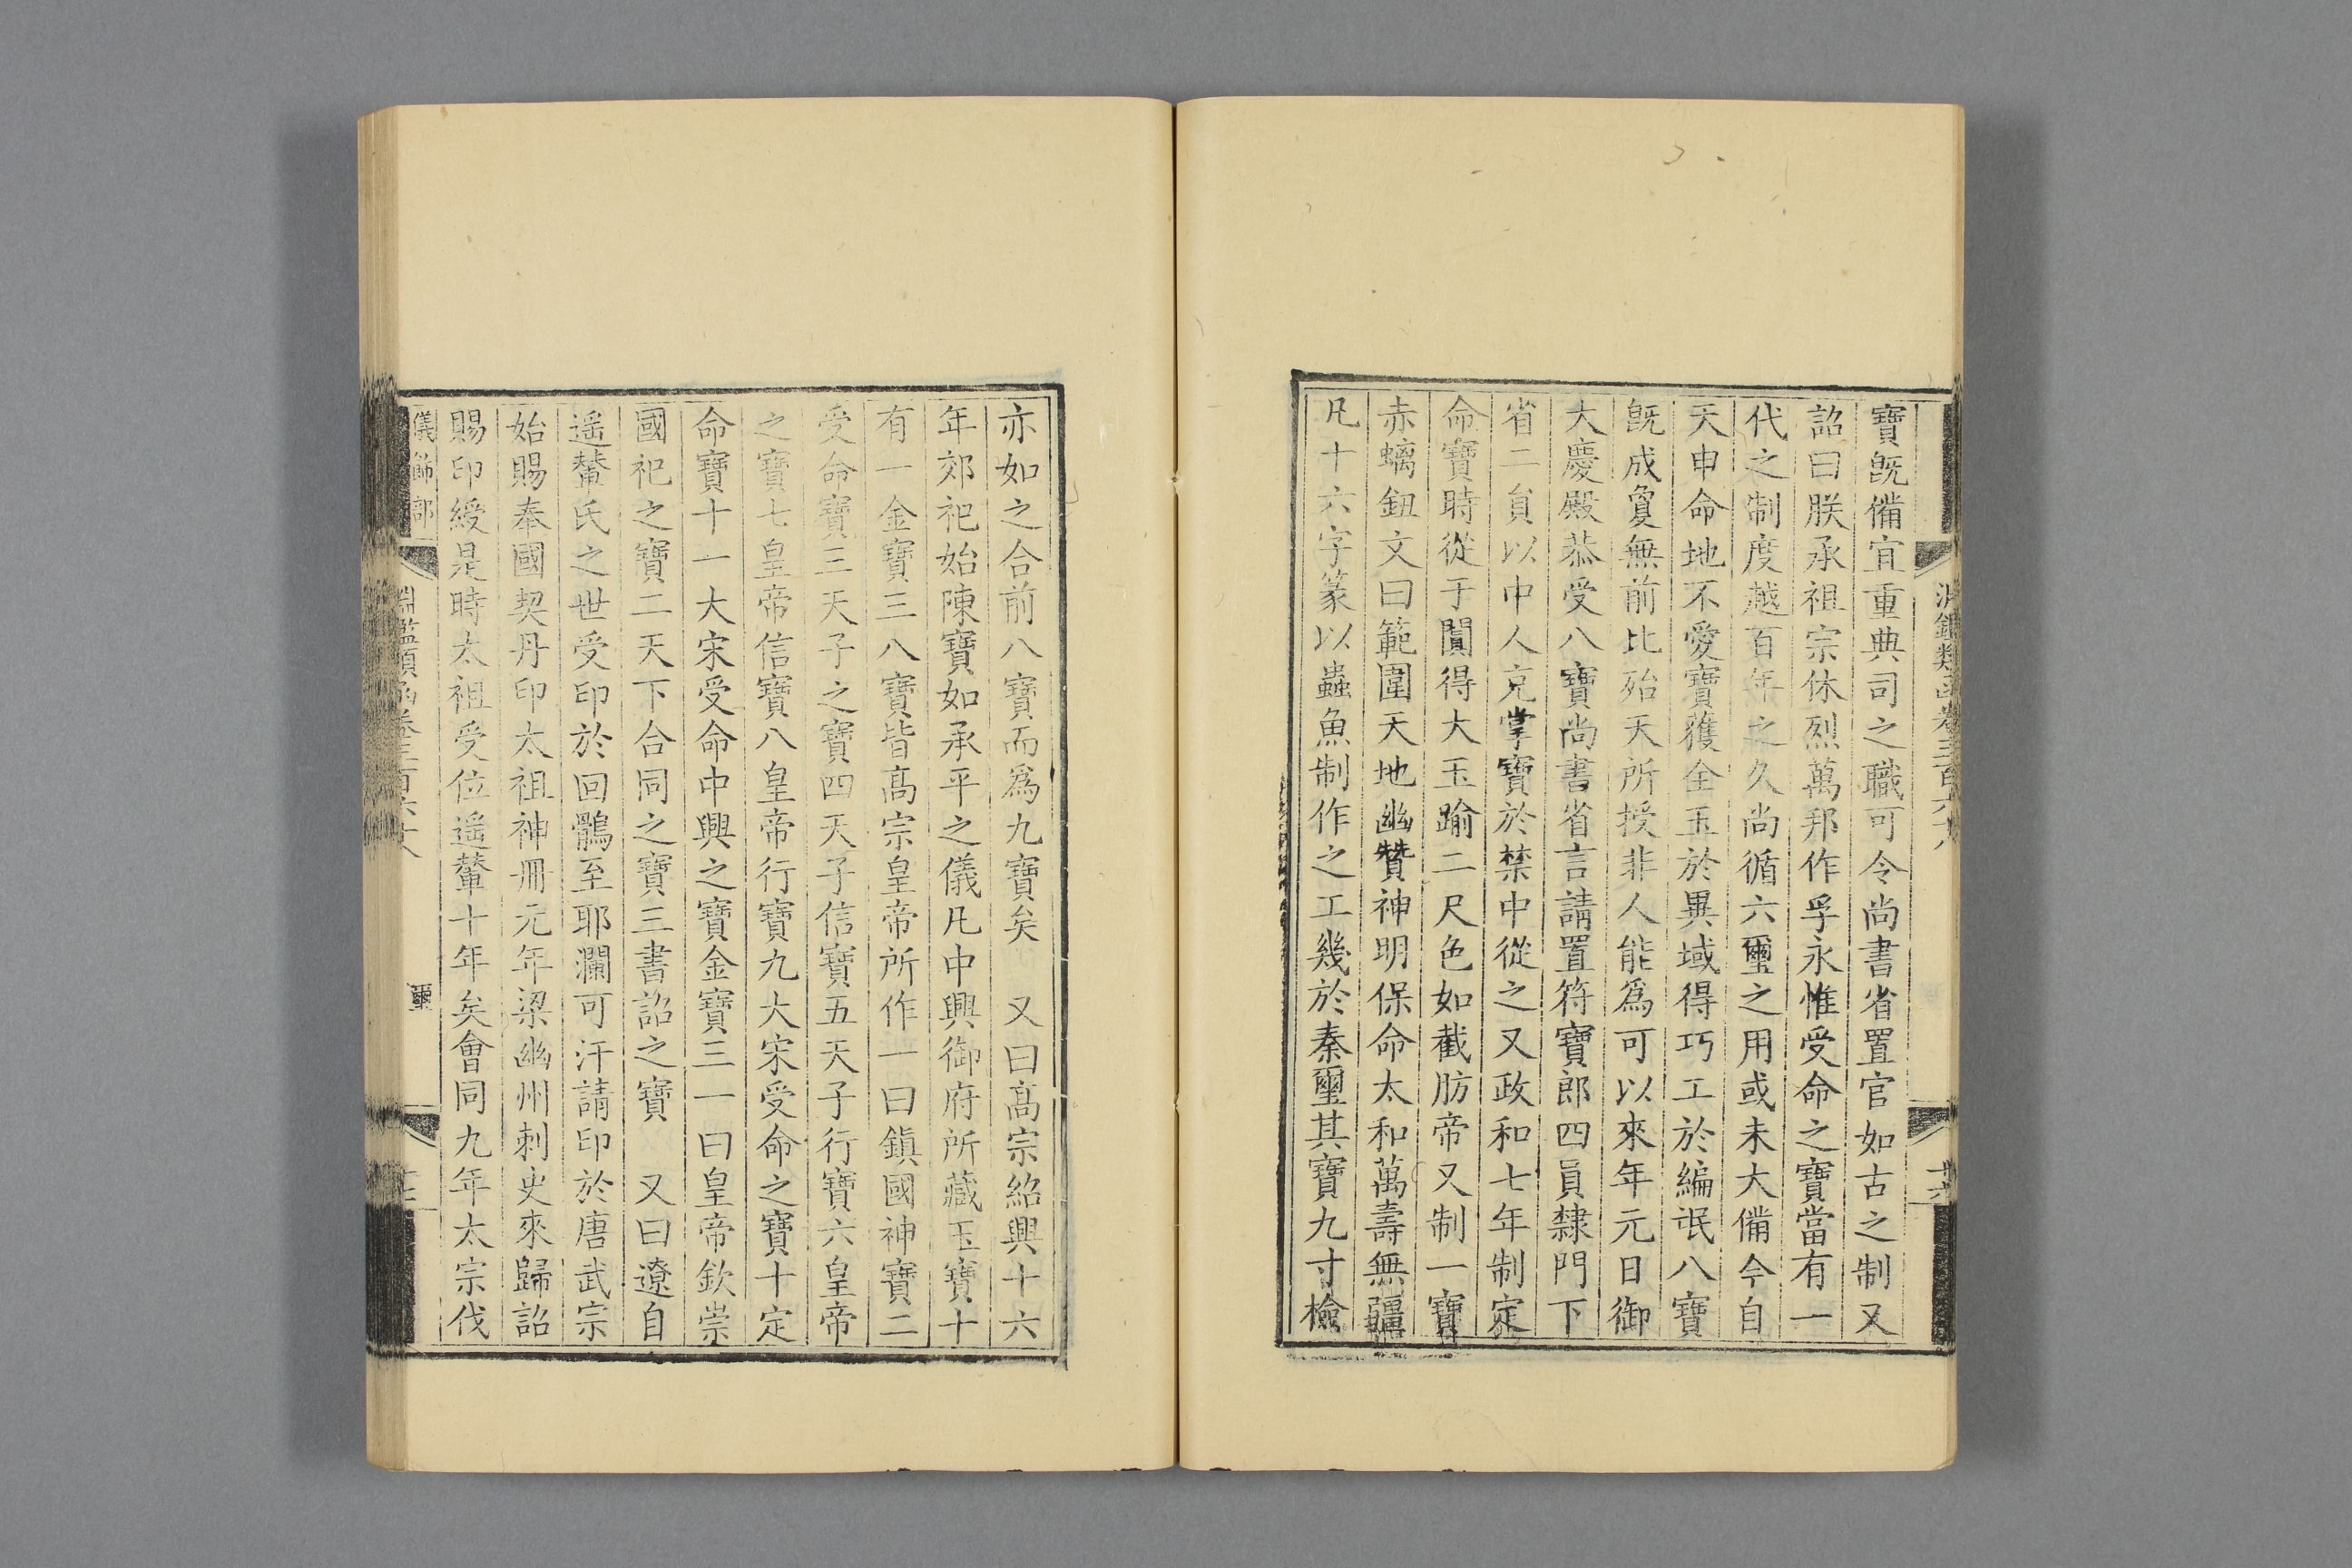 寶旣備宜重典司之職可令尚書省置官如古之制又
詔曰朕承祖宗休烈萬邦作孚永惟受命之寶當有一
代之制度越百年之久尚循六璽之用或未大備今自
天申命地不愛寶獲全玉於異域得巧工於編氓八寶
旣成敻無前比殆天所授非人能爲可以來年元日御
大慶殿恭受八寶尚書省言請置符寶郎四員隸門下
省二員以中人充掌寶於禁中從之又政和七年制定
命寶時從于闐得大玉踰二尺色如截肪帝又制一寶
赤螭鈕文曰範圍天地幽贊神明保命太和萬壽無疆
凡十六字篆以蟲魚制作之工幾於秦璽其寶九寸檢
亦如之合前八寶而爲九寶矣　又曰髙宗紹興十六
年郊祀始陳寶如承平之儀凡中興御府所藏玉寶十
有一金寶三八寶皆髙宗皇帝所作一曰鎭國神寶二
受命寶三天子之寶四天子信寶五天子行寶六皇帝
之寶七皇帝信寶八皇帝行寶九大宋受命之寶十定
命寶十一大宋受命中興之寶金寶三一曰皇帝欽崇
國祀之寶二天下合同之寶三書詔之寶　又曰遼自
遥輦氏之世受印於回鶻至耶瀾可汗請印於唐武宗
始賜奉國契丹印太祖神冊元年梁幽州刺史來歸詔
賜印綬是時太祖受位遥輦十年矣會同九年太宗伐
儀飾部
淵鑑類函卷三百六十八
璽